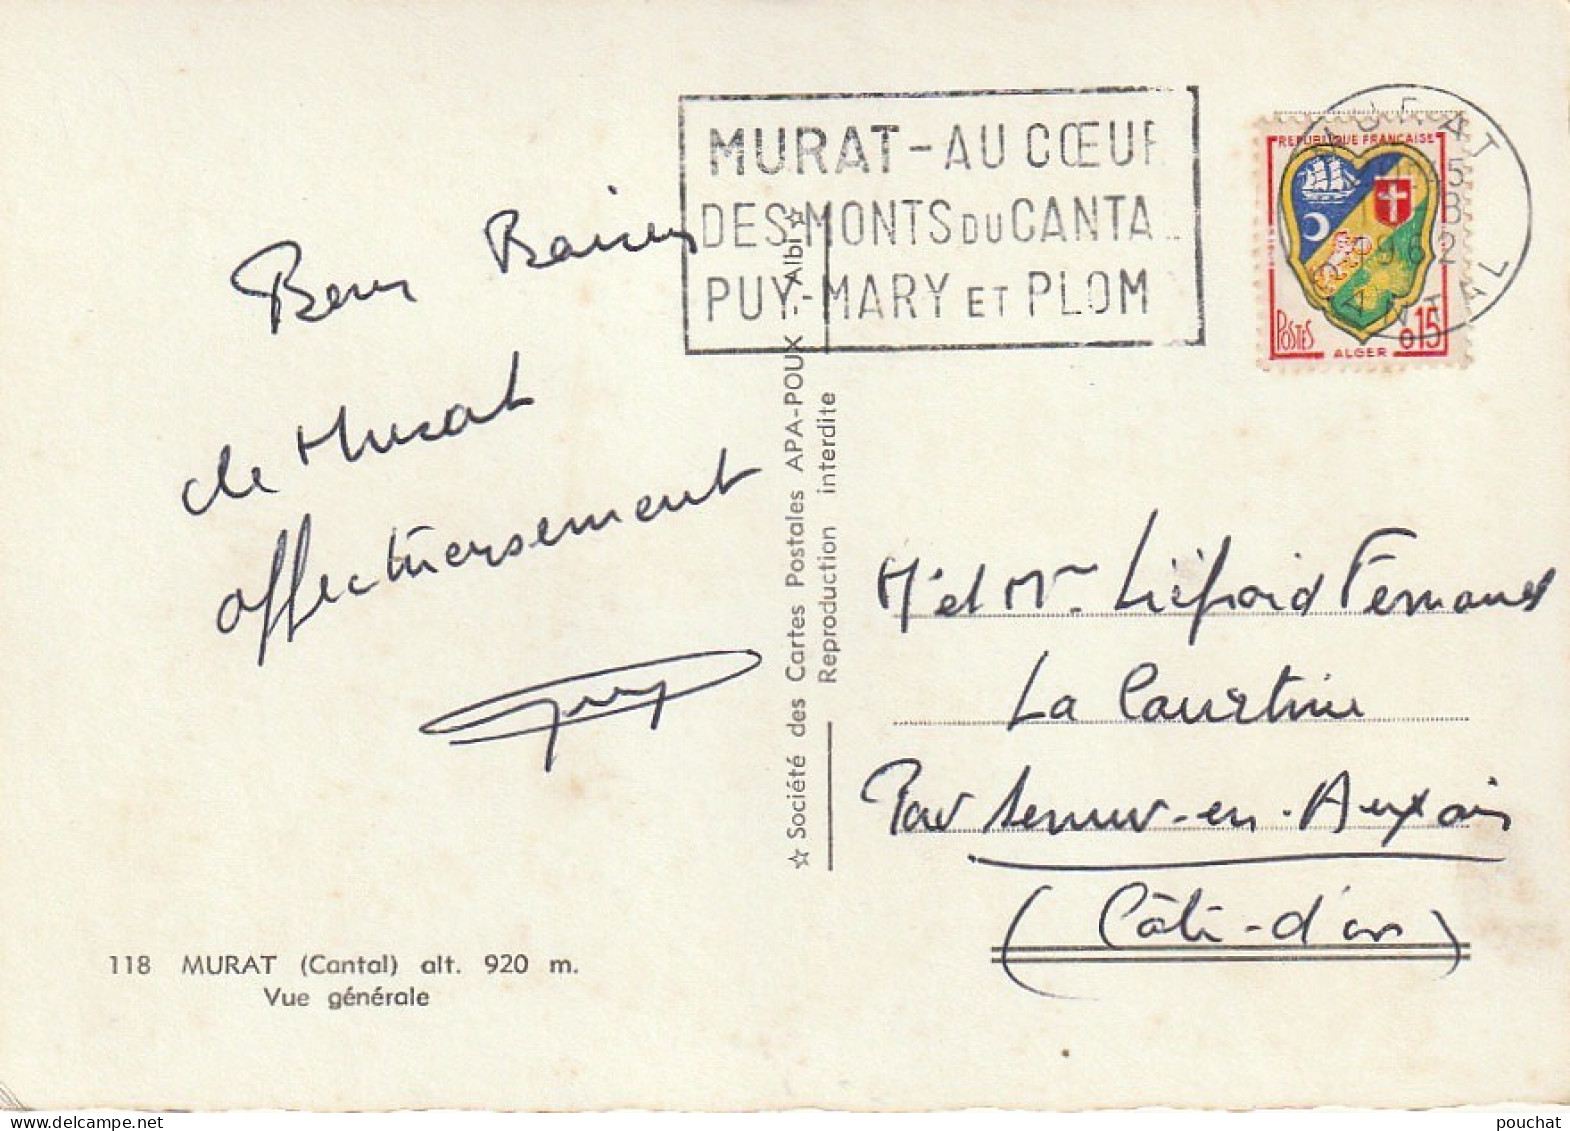 MURAT - AU CŒUR
DES MONTS DU CANTA
PUY-MARY ET PLOM
MURAT
15
8
1962
CANTAL
REPUBLIQUE FRANÇAISE
POSTES
ALGER
0,15
Bons Baisers
de Murat
affectueusement
☆ Société des Cartes Postales APA-POUX - Albi ☆
Reproduction interdite
Mr et Mme Fernand
La Courtine
Par Semur-en-Auxois
(Côte-d'or)
118 MURAT (Cantal) alt. 920 m.
Vue générale
pouchat